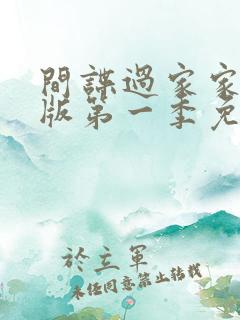 間諜過家家
版第一季免
於立軍
未經同意禁止轉載